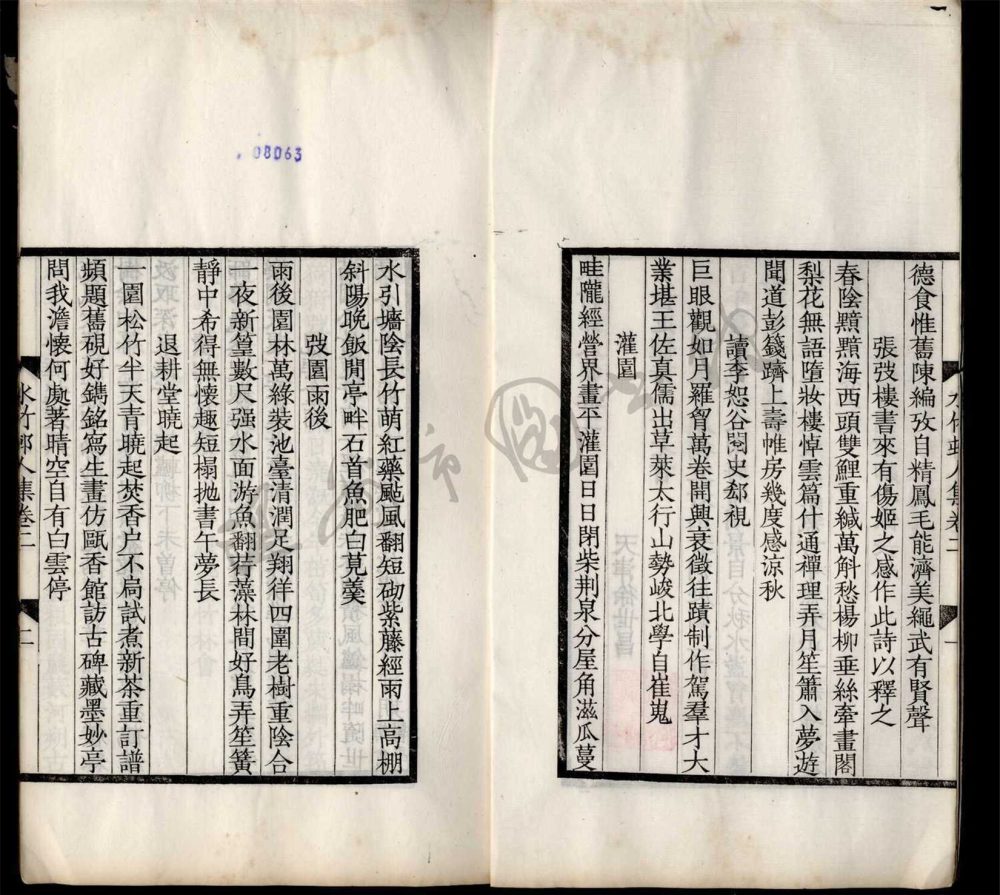 德食惟舊陳編攷自精鳳毛能濟美繩武有賢聲
張弢樓書來有傷姬之感作此詩以釋之
春陰黯黯海西頭雙鯉重緘萬斛愁楊柳垂絲牽畫閣
梨花無語墮妝樓悼雲篇什通禪理弄月笙簫入夢遊
聞道彭籛躋上壽帷房幾度感涼秋
讀李恕谷閱史郄視
巨眼觀如月羅胷萬卷開興衰徵往蹟制作駕羣才大
業堪王佐真儒出草萊太行山勢峻北學自崔嵬
灌園
畦隴經營界畫平灌園日日閉柴荆泉分屋角滋瓜蔓
水引墻陰長竹萌紅藥颭風翻短砌紫藤經雨上高棚
斜陽晚飯閒亭畔石首魚肥白莧羹
弢園雨後
雨後園林萬綠裝池臺清潤足翔徉四圍老樹重陰合
一夜新篁數尺强水面游魚翻荇藻林間好鳥弄笙簧
靜中希得無懷趣短榻抛書午夢長
退耕堂曉起
一園松竹半天青曉起焚香户不扃試煮新茶重訂譜
頻題舊硯好鐫銘寫生畫仿甌香館訪古碑藏墨妙亭
問我澹懷何處著晴空自有白雲停
水竹邨人集卷二
二
08063